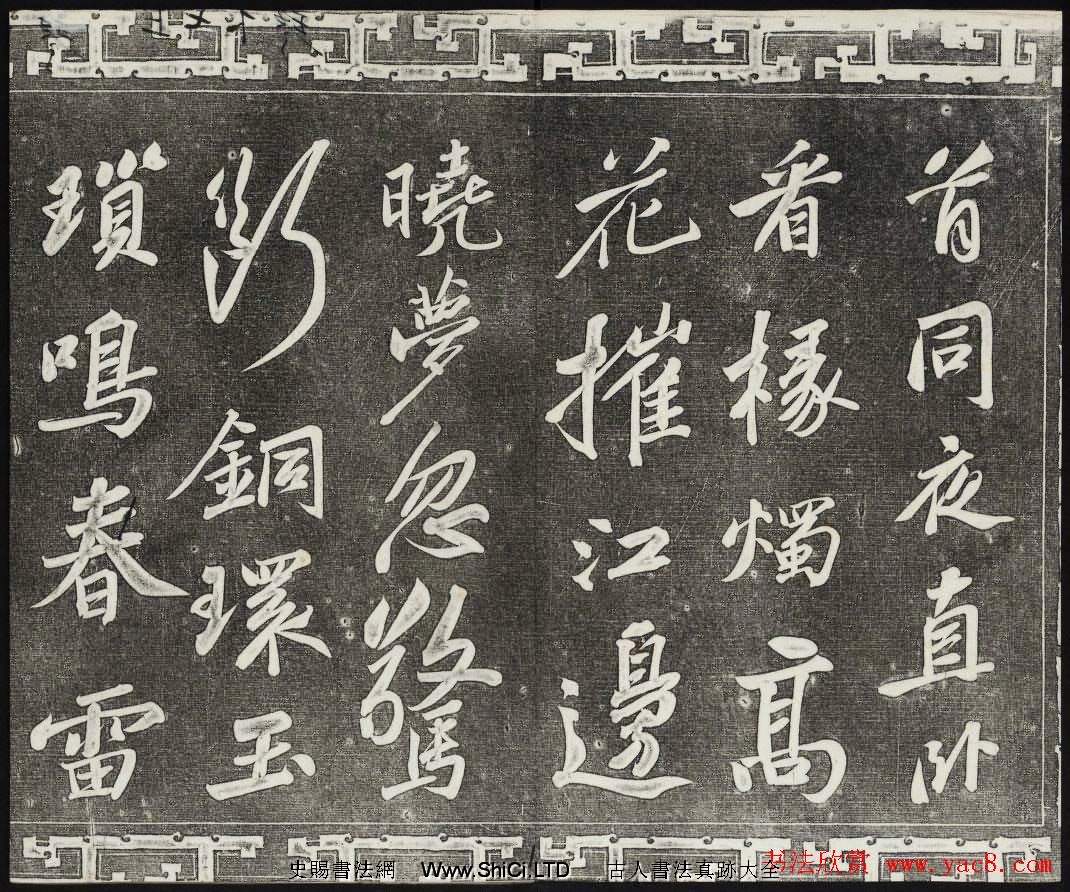 首同夜直卧
看椽燭高
花摧江邊
曉夢忽驚
斷銅環玉
瑣鳴春雷
史賜書法網 Www.ShiCi.LTD 古人書法真跡大全
书法欣赏 www.yac8.com